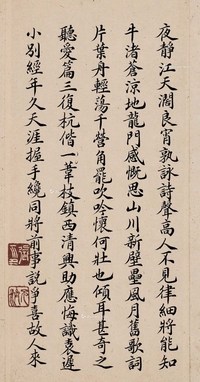 夜靜江天濶良宵孰詠詩聲高人不見律細將能知
牛渚蒼涼地龍門感慨思山川新壁壘風月舊歌詞
片葉舟輕蕩千營角罷吹吟懷何壯也傾耳甚奇之
聽愛篇三復杭偕一葦枝鎮西清興助應悔識袁遲
小別經年久天涯握手纔同將前事說爭喜故人來